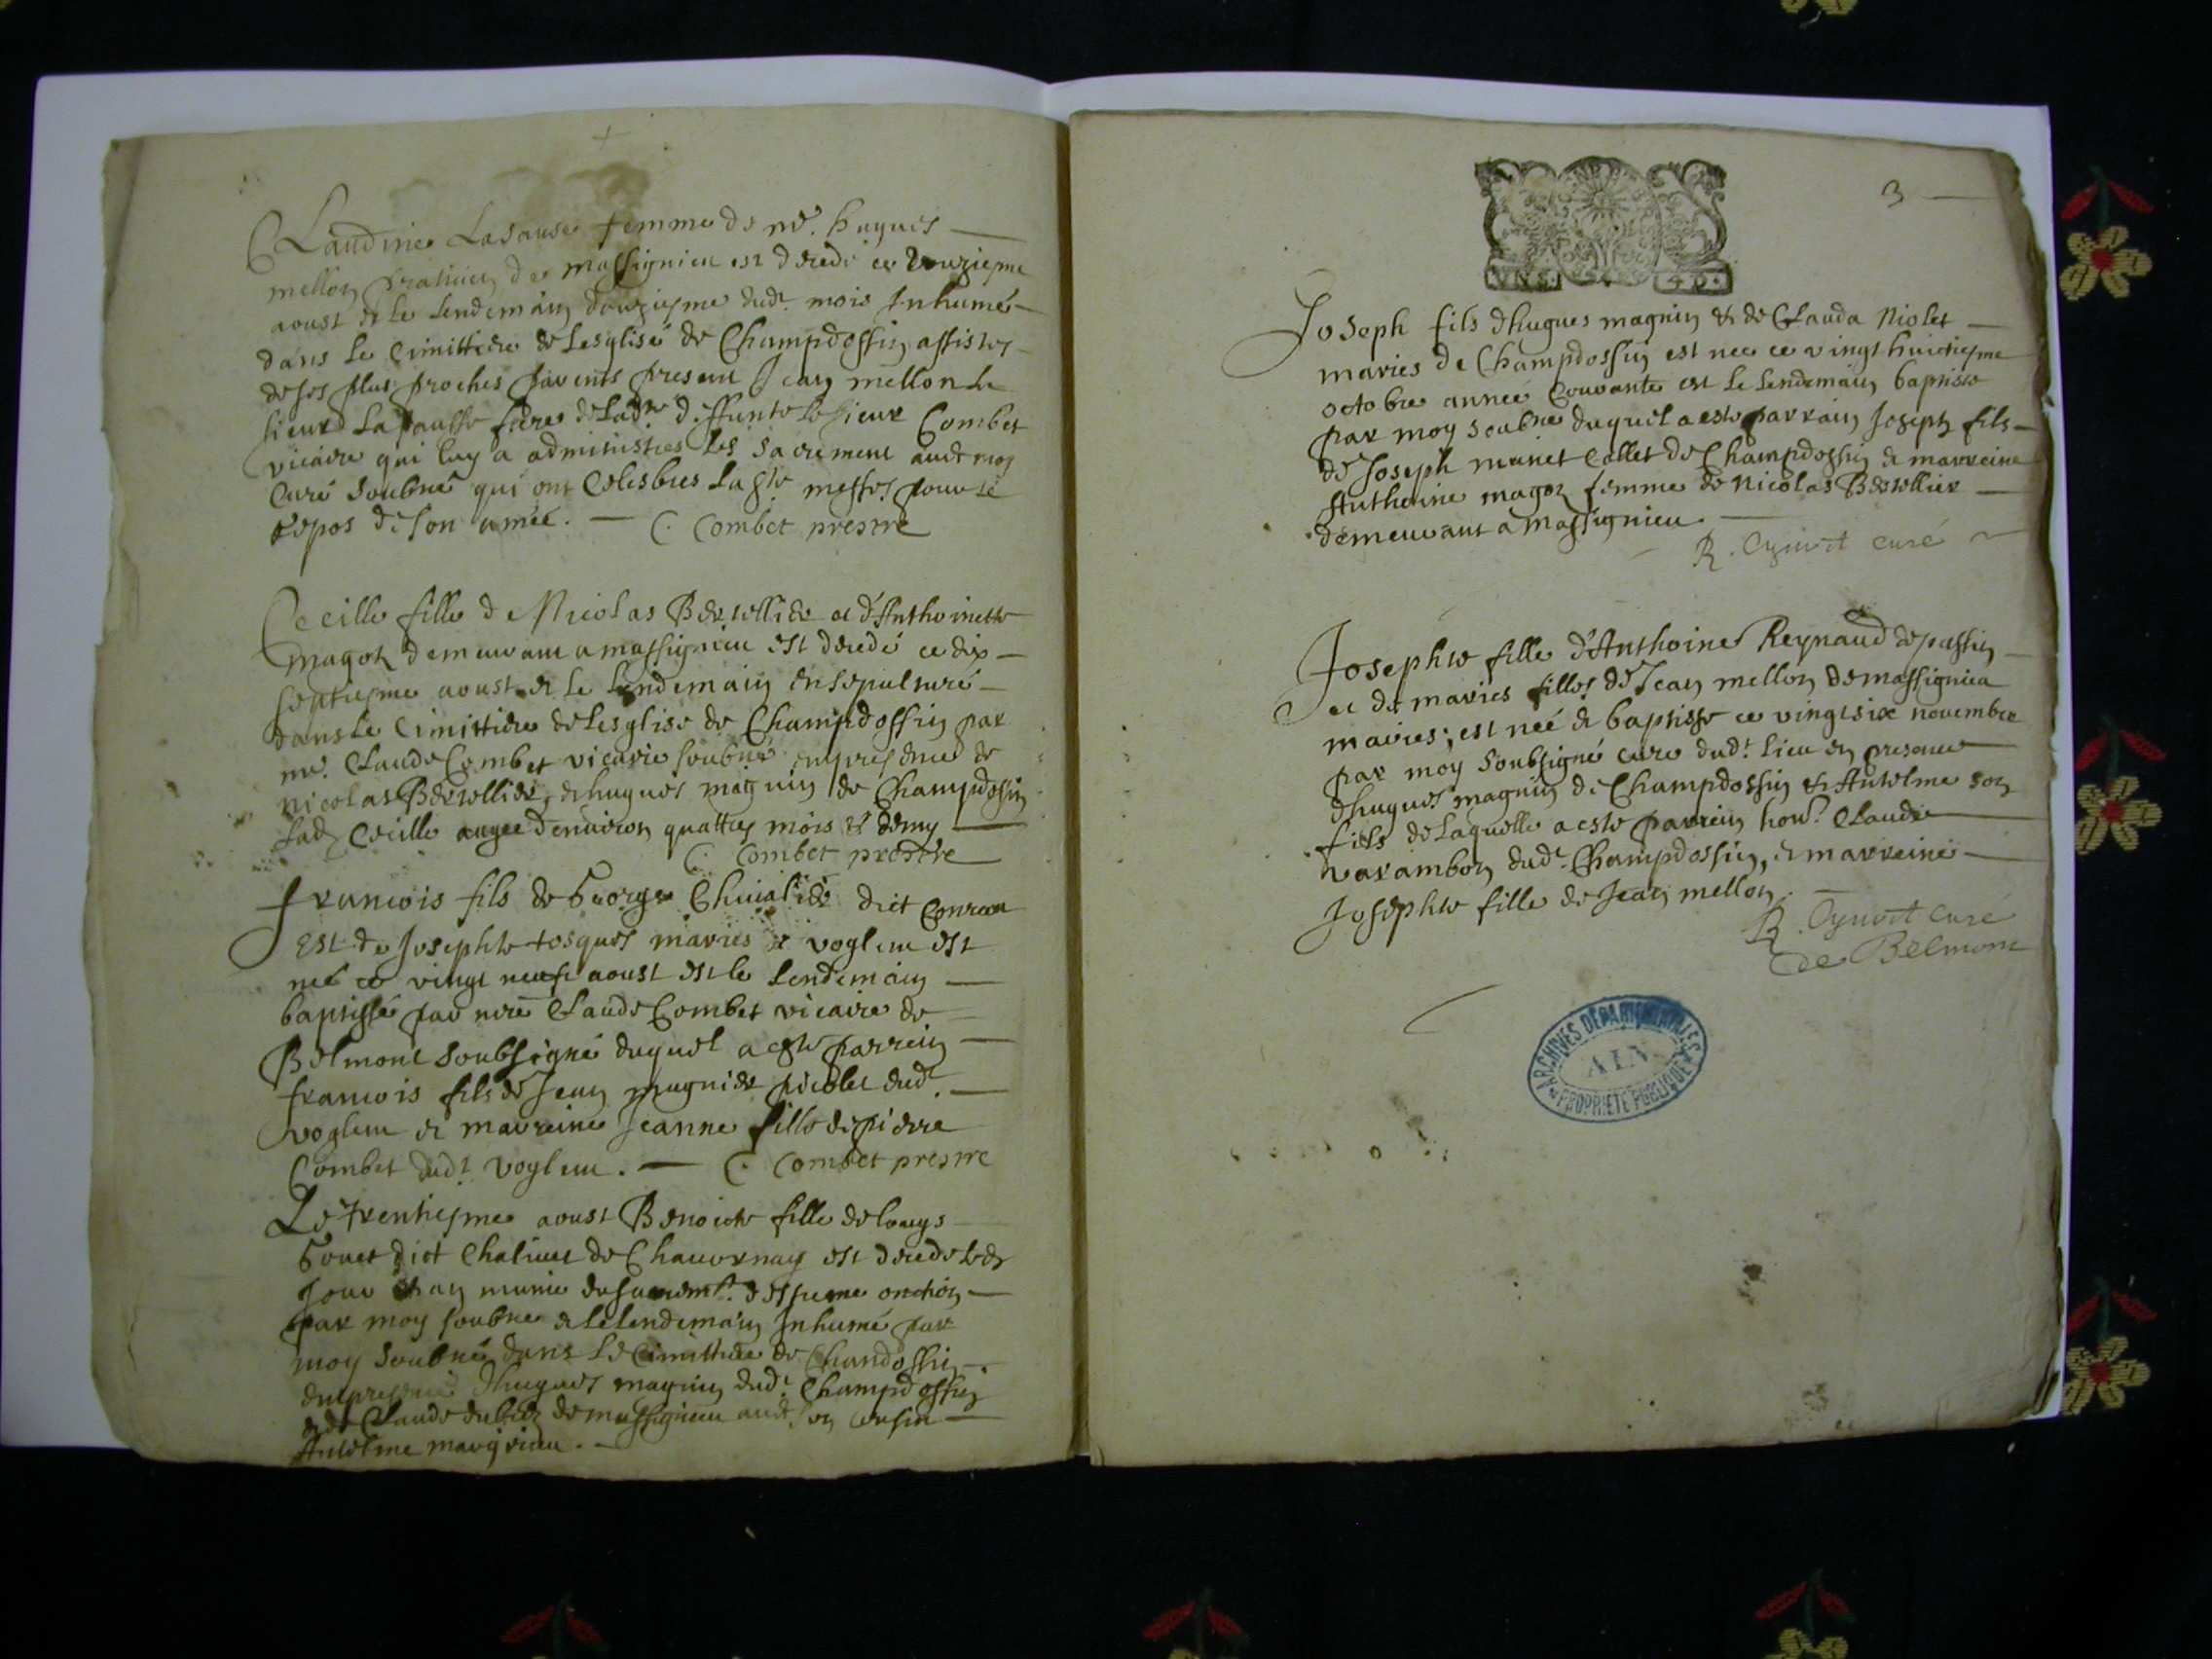 Claudine Lasause femme de me. hugues
mellon praticien de massignieu est decedé ce unziesme
aoust & le lendemain douziesme dudt mois Inhumé
dans le cimittiere de lesglise de Champdossin assistes
de ses plus proches parents present Jean mellon le
sieur Lasausse frere de ladte deffunte le sieur Combet
vicaire qui luy a administres les sacrement audt moy
Curé soubne qui ont celesbres la ste messes pour le
repos de son amée. C. Combet prestre
Cecille fille de Nicolas Bertellier et d'Anthoinette
magon demeurant a massignieu est decedé ce dix
septiesme aoust & le lendemain ensepulturé
dans le cimittiere de lesglise de Champdossin par
me. Claude Combet vicaire soubné en presence de
nicolas Bertellier, & hugues magnin de Champdossin
lad Cecille augee denuiron quattres mois & demy
C. Combet prestre
francois fils de George Chivalier dict
est de Josephte tosques maries a voglem est
né ce vingt neufe aoust est le lendemain
baptissé par mre Claude Combet vicaire de
Belmont soubsigné duquel a este parrein
francois fils de Jean mugnier picolet dudt
voglem et marreine Jeanne fille de pierre
Combet dudt voglem. C. Combet prestre
Le trentiesme aoust Benoicte fille de louys
Gouet dict Chaliuet de Chauornay est decede led
jour munie du sacremt. d'estreme onction
par moy soubne & le lendemain Inhumé par
moy soubné dans le Cimittiere de Chandossin
en presence d'hugues magnin dudt Champdossin
& de Claude de massignieu audt son cousin
Antelme
3
VN S. 4 D.
Joseph fils d'hugues magnin & de Clauda Niolet
maries de Champdossin est nee ce vingt huictiesme
octobre année Courante est le lendemain baptisse
par moy soubne duquel a este parrain Joseph fils
de Joseph munet Collet de Champdossin & marreine
Anthoine magon femme de nicolas Bertellier
demeurant a massignieu.
R. Cyvoct curé
Josephte fille d'Anthoine Reynaud de passin
et de maries filles de Jean mellon de massignieu
maries; est neé & baptisse ce vingt six novembre
par moy soubsigné cure dudt. lieu en presance
d'hugues magnin de Champdossin & Antelme son
fils de laquelle a este parrein hon. Claude
varambon dudt. Champdossin, & marreine
Josephte fille de Jean mellon.
R. Cyvoct curé
de Belmont
ARCHIVES DÉPARTEMENTALES
AIN
PROPRIÉTÉ PUBLIQUE